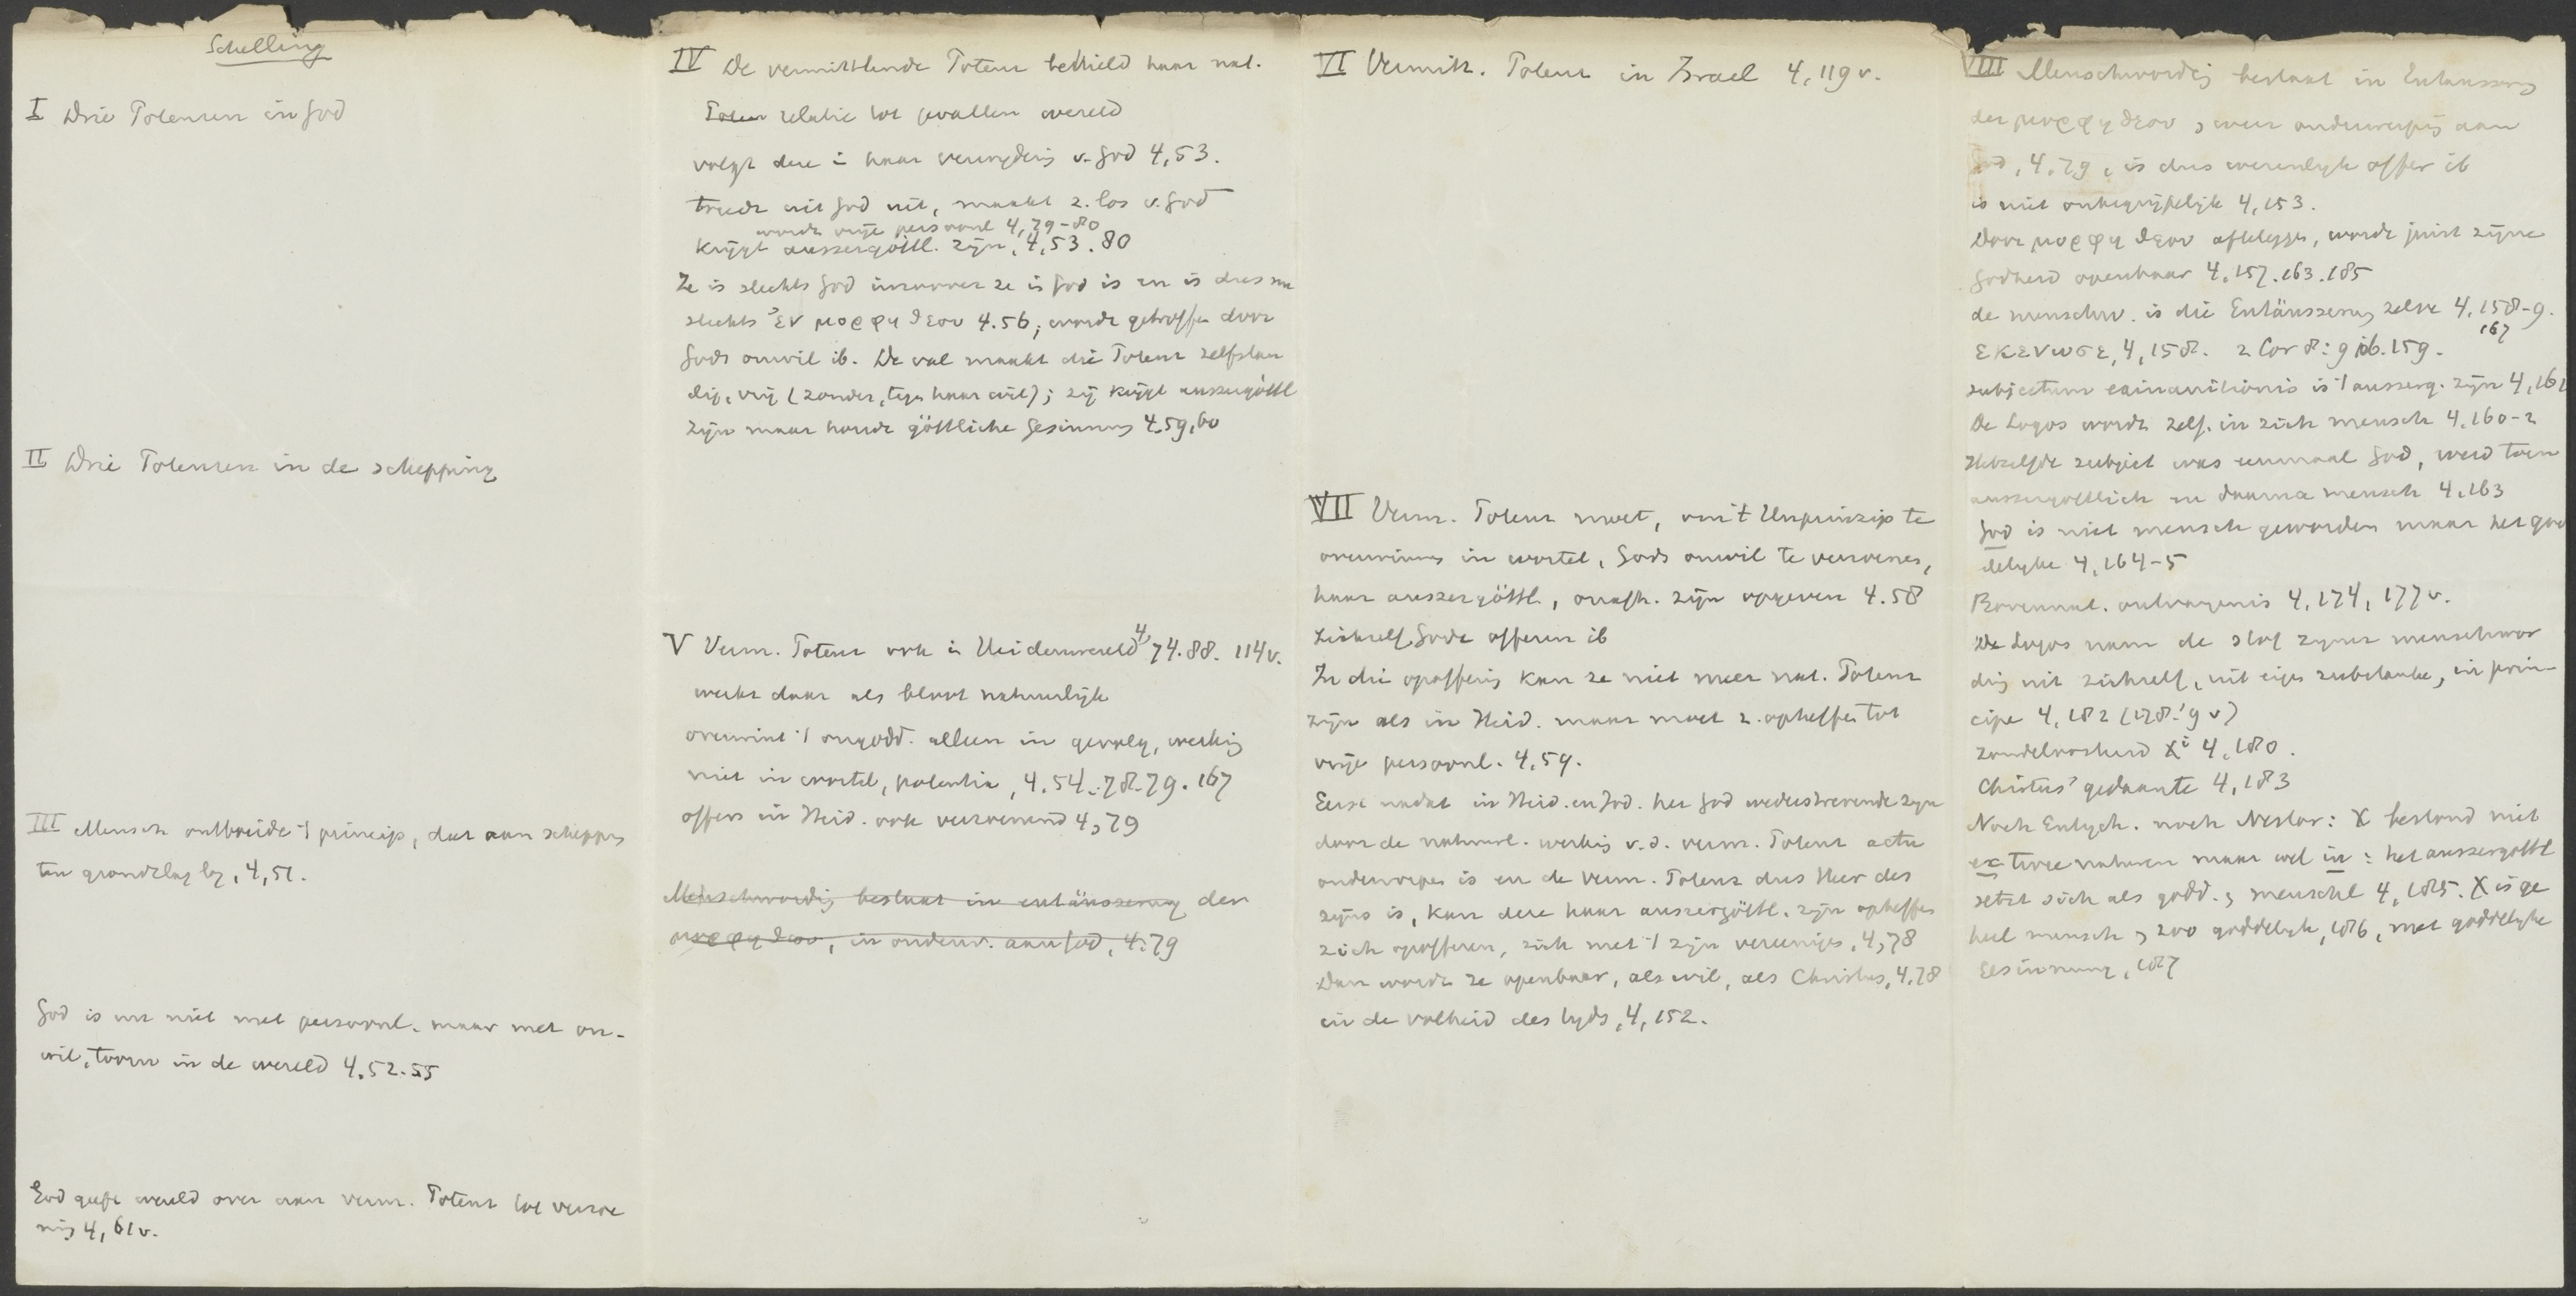 Schelling
I Drie Potenzen in God
II Drie Potenzen in de schepping
III Mensch ontbreidt 't princip, dat aan schepping
ten grondslag lag, 4,51.
God is nu niet met persoonl. maar met on-
wil, toorn in de wereld 4.52.55
God geeft wereld over aan verm. Potenz tot verzoe
ning 4,61v.
IV De vermittlende Potenz behield haar nat.
Potenz relatie tot gevallen wereld
volgt deze in haar verwijdering v. God 4,53.
treedt uit God uit, maakt z. los v. God
wordt vrije persoonl 4,79-80
krijgt aussergöttl. zijn, 4,53.80
Ze is slechts God inzoover ze in God is en is dus nu
slechts ἐν μορφῃ θεου 4.56; wordt getroffen door
Gods onwil ib. De val maakt die Potenz zelfstan
dig, vrij (zonder, tegen haar wil); zij krijgt aussergöttl
zijn maar houdt göttliche Gesinnung 4.59,60
V Verm. Potenz ook in Heidenwereld 4, 74.88. 114v.
werkt daar als bloot natuurlijke
overwint 't ongodd. alleen in gevolg, werking
niet in wortel, potentia, 4.54.78-79.167
offers in Heid. ook verzoenend 4,79
Menschwording bestaat in entäusserung der
μορφη θεου, in onderw. aan God, 4.79
VI Vermitt. Potenz in Israel 4,119v.
VII Verm. Potenz moet, om 't Unprinzip te
overwinnen in wortel, Gods onwil te verzoenen,
haar aussergöttl., onafh. zijn opgeven 4.58
zichzelf Gode offeren ib
In die opoffering kan ze niet meer nat. Potenz
zijn als in Heid. maar moet z. opheffen tot
vrije persoonl. 4,59.
Eerst nadat in Heid. en Jod. het God wederstrevende zijn
door de natuurl. werking v.d. verm. Potenz actu
onderworpen is en de verm. Potenz dus Heer des
zijns is, kan deze haar aussergöttl. zijn opheffen
zich opofferen, zich met 't zijn vereenigen, 4,78
Dan wordt ze openbaar, als wil, als Christus, 4.78
in de volheid des tijds, 4,152.
VIII Menschwording bestaat in Entäusserung
der μορφη θεου, weer onderwerping aan
God, 4.79, is dus werenlijk offer ib
is niet onbegrijpelijk 4,153.
Door μορφη θεου afteleggen, wordt juist zijne
Godheid openbaar 4.157.163.185
de menschw. is die Entäusserung zelve 4,158-9.
167
εκενωσε, 4,158. 2 Cor 8:9 ib.159.
subjectum exinanitionis is 't ausserg. zijn 4,161
De Logos wordt zelf in zich mensch 4.160-2
Hetzelfde subject was eenmaal God, werd toen
aussergöttlich en daarna mensch 4.163
God is niet mensch geworden maar het god
delijke 4,164-5
Bovennat. ontvangenis 4,174, 177v.
De Logos nam de stof zijner menschwor
ding uit zichzelf, uit eigen substantie, in prin
cipe 4,182 (178-9v)
zondeloosheid Xi 4,180.
Christus' gedaante 4,183
Noch Eutych. noch Nestor: X bestond niet
ex twee naturen maar wel in: het aussergöttl
setzt sich als godd. en menschl 4,185. X is ge
heel mensch en zoo goddelijk, 186, met goddelijke
Gesinnung, 187